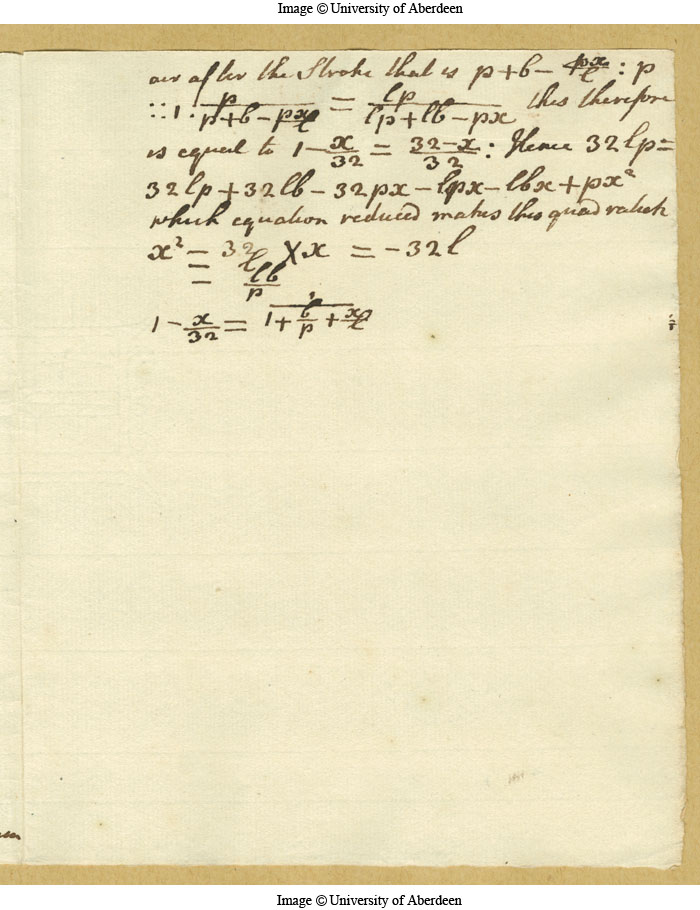 Image © University of Aberdeen
air after the Stroke that is p+b−px/l : p
:: 1 . p/(p+b−px/l) = lp/(lp+lb−px) this therefore
is equal to 1−x/32 = (32−x)/32 : Hence 32lp=
32lp+32lb−32px−lpx−lbx+px²
which equation reduced makes this quadratick
x² − 32 × x = −32l
− l
− lb/p
1−x/32 = 1/(1+b/p+x/l)
Image © University of Aberdeen